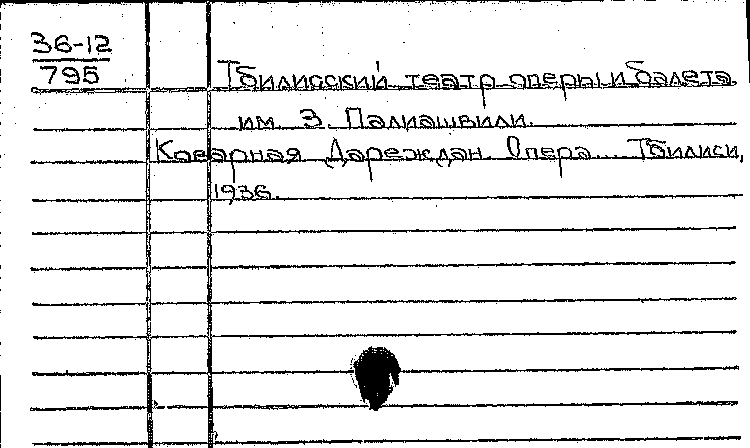 36-12
795
Тбилисский театр оперы и балета
им. З. Палиашвили.
Коварная Дареждан. Опера. Тбилиси,
1936.